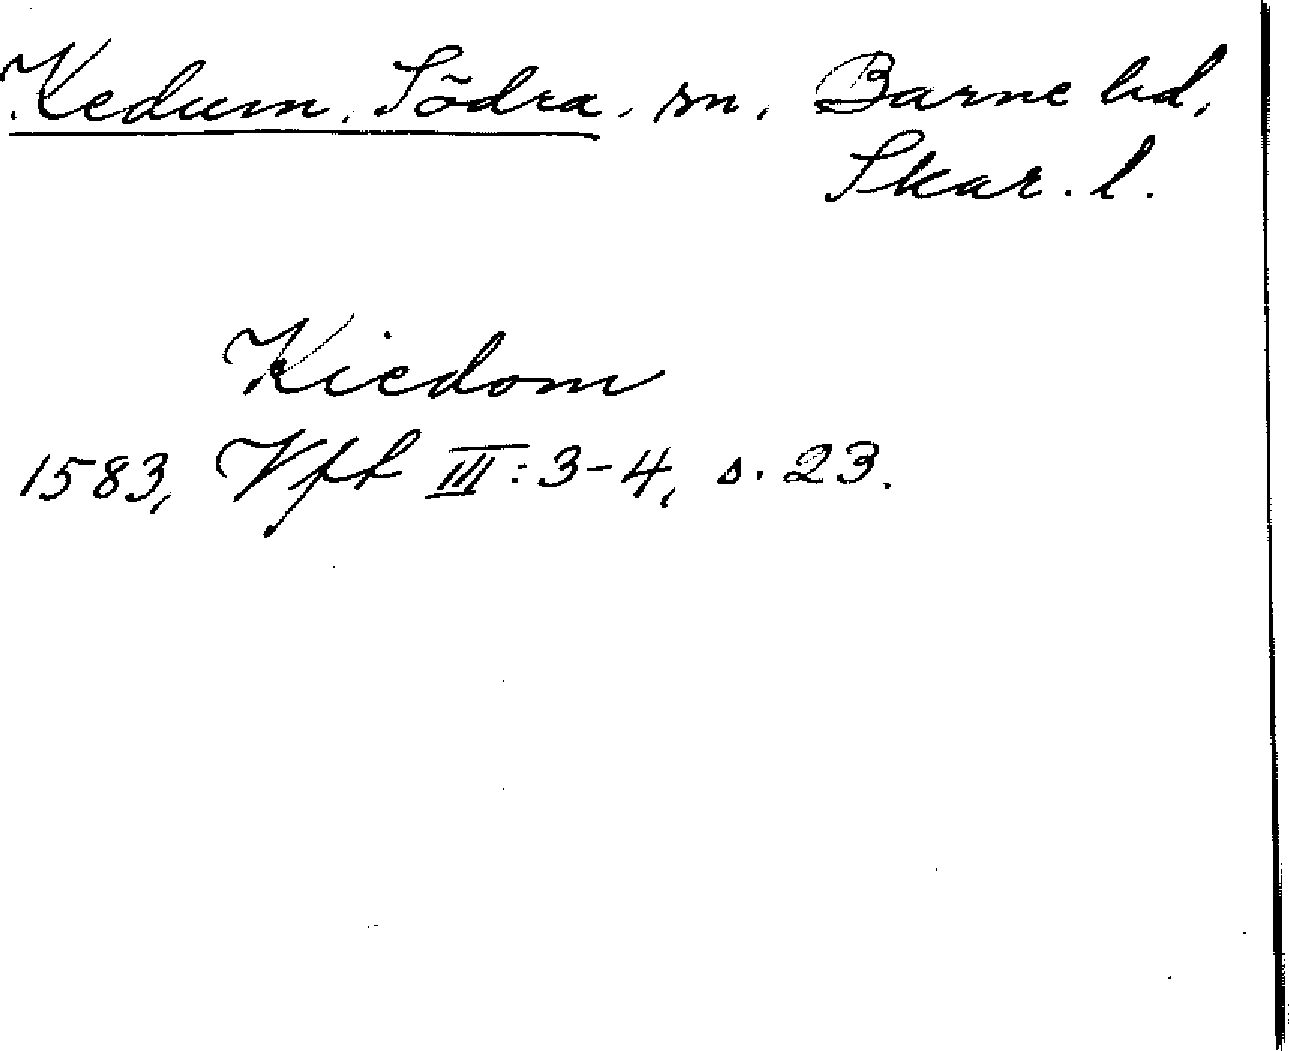 Kedum, Södra, sn, Barne hd,
Skar. l.
Kiedom
1583, Vft III: 3-4, s. 23.